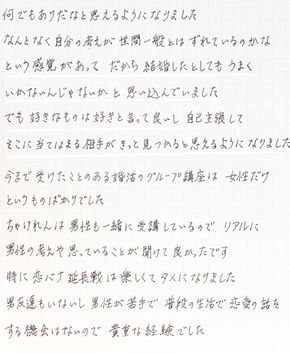 何でもありだなと思えるようになりました
なんとなく自分の考えが世間一般とはずれているのかな
という感覚があって だから結婚したとしてもうまく
いかないんじゃないかと思い込んでいました
でも好きなものは好きと言って良いし自己主張して
そこに当てはまる相手がきっと見つかると思えるようになりました
今まで受けたことのある婚活のグループ講座は女性だけ
というものばかりでした
ちゃけれんは男性も一緒に受講しているのでリアルに
男性の考えや思っていることが聞けて良かったです
特に恋バナ延長戦は楽しくてタメになりました
男友達もいないし男性が苦手で普段の生活で恋愛の話を
する機会はないので貴重な経験でした